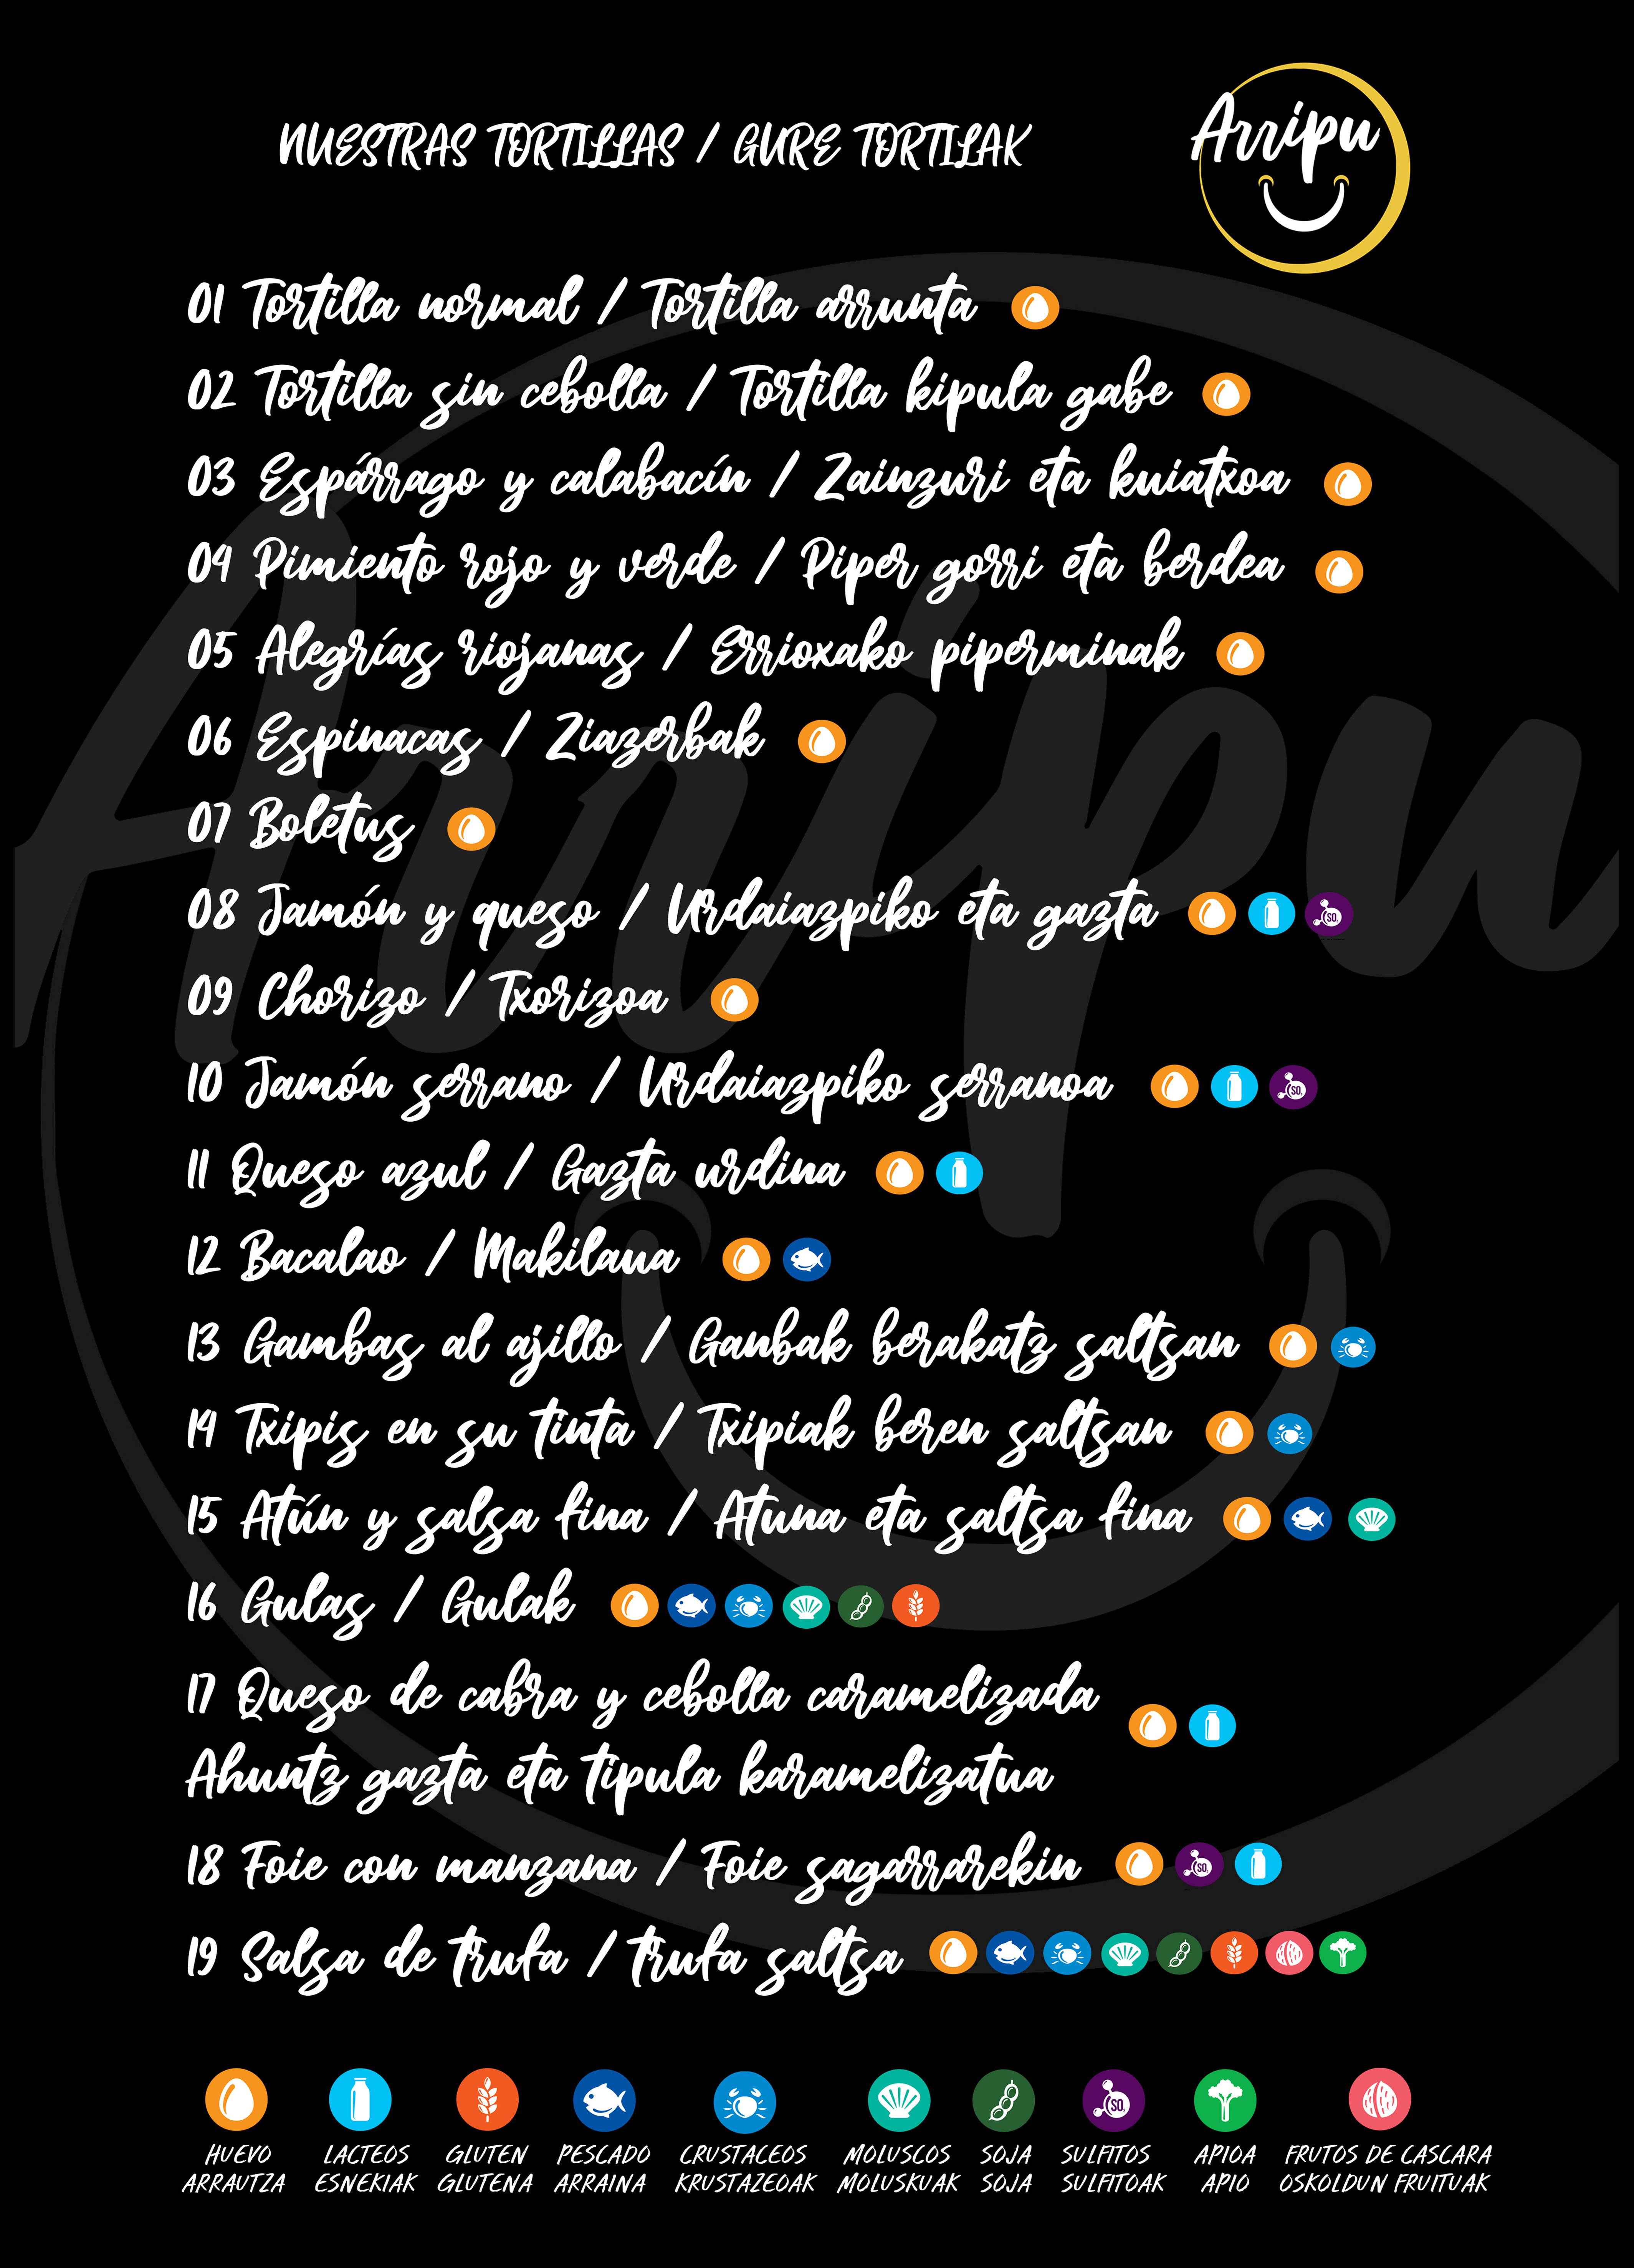 NUESTRAS TORTILLAS / GURE TORTILAK
Arripu
01 Tortilla normal / Tortilla arrunta
02 Tortilla sin cebolla / Tortilla kipula gabe
03 Espárrago y calabacín / Zainzuri eta kuiatxoa
04 Pimiento rojo y verde / Piper gorri eta berdea
05 Alegrías riojanas / Errioxako piperminak
06 Espinacas / Ziazerbak
07 Boletus
08 Jamón y queso / Urdaiazpiko eta gazta
09 Chorizo / Txorizoa
10 Jamón serrano / Urdaiazpiko serranoa
11 Queso azul / Gazta urdina
12 Bacalao / Makilaua
13 Gambas al ajillo / Ganbak berakatz saltsan
14 Txipis en su tinta / Txipiak beren saltsan
15 Atún y salsa fina / Atuna eta saltsa fina
16 Gulas / Gulak
17 Queso de cabra y cebolla caramelizada
Ahuntz gazta eta tipula karamelizatua
18 Foie con manzana / Foie sagarrarekin
19 Salsa de trufa / trufa saltsa
HUEVO LACTEOS GLUTEN PESCADO CRUSTACEOS MOLUSCOS SOJA SULFITOS APIOA FRUTOS DE CASCARA
ARRAUTZA ESNEKIAK GLUTENA ARRAINA KRUSTAZEOAK MOLUSKUAK SOJA SULFITOAK APIO OSKOLDUN FRUITUAK